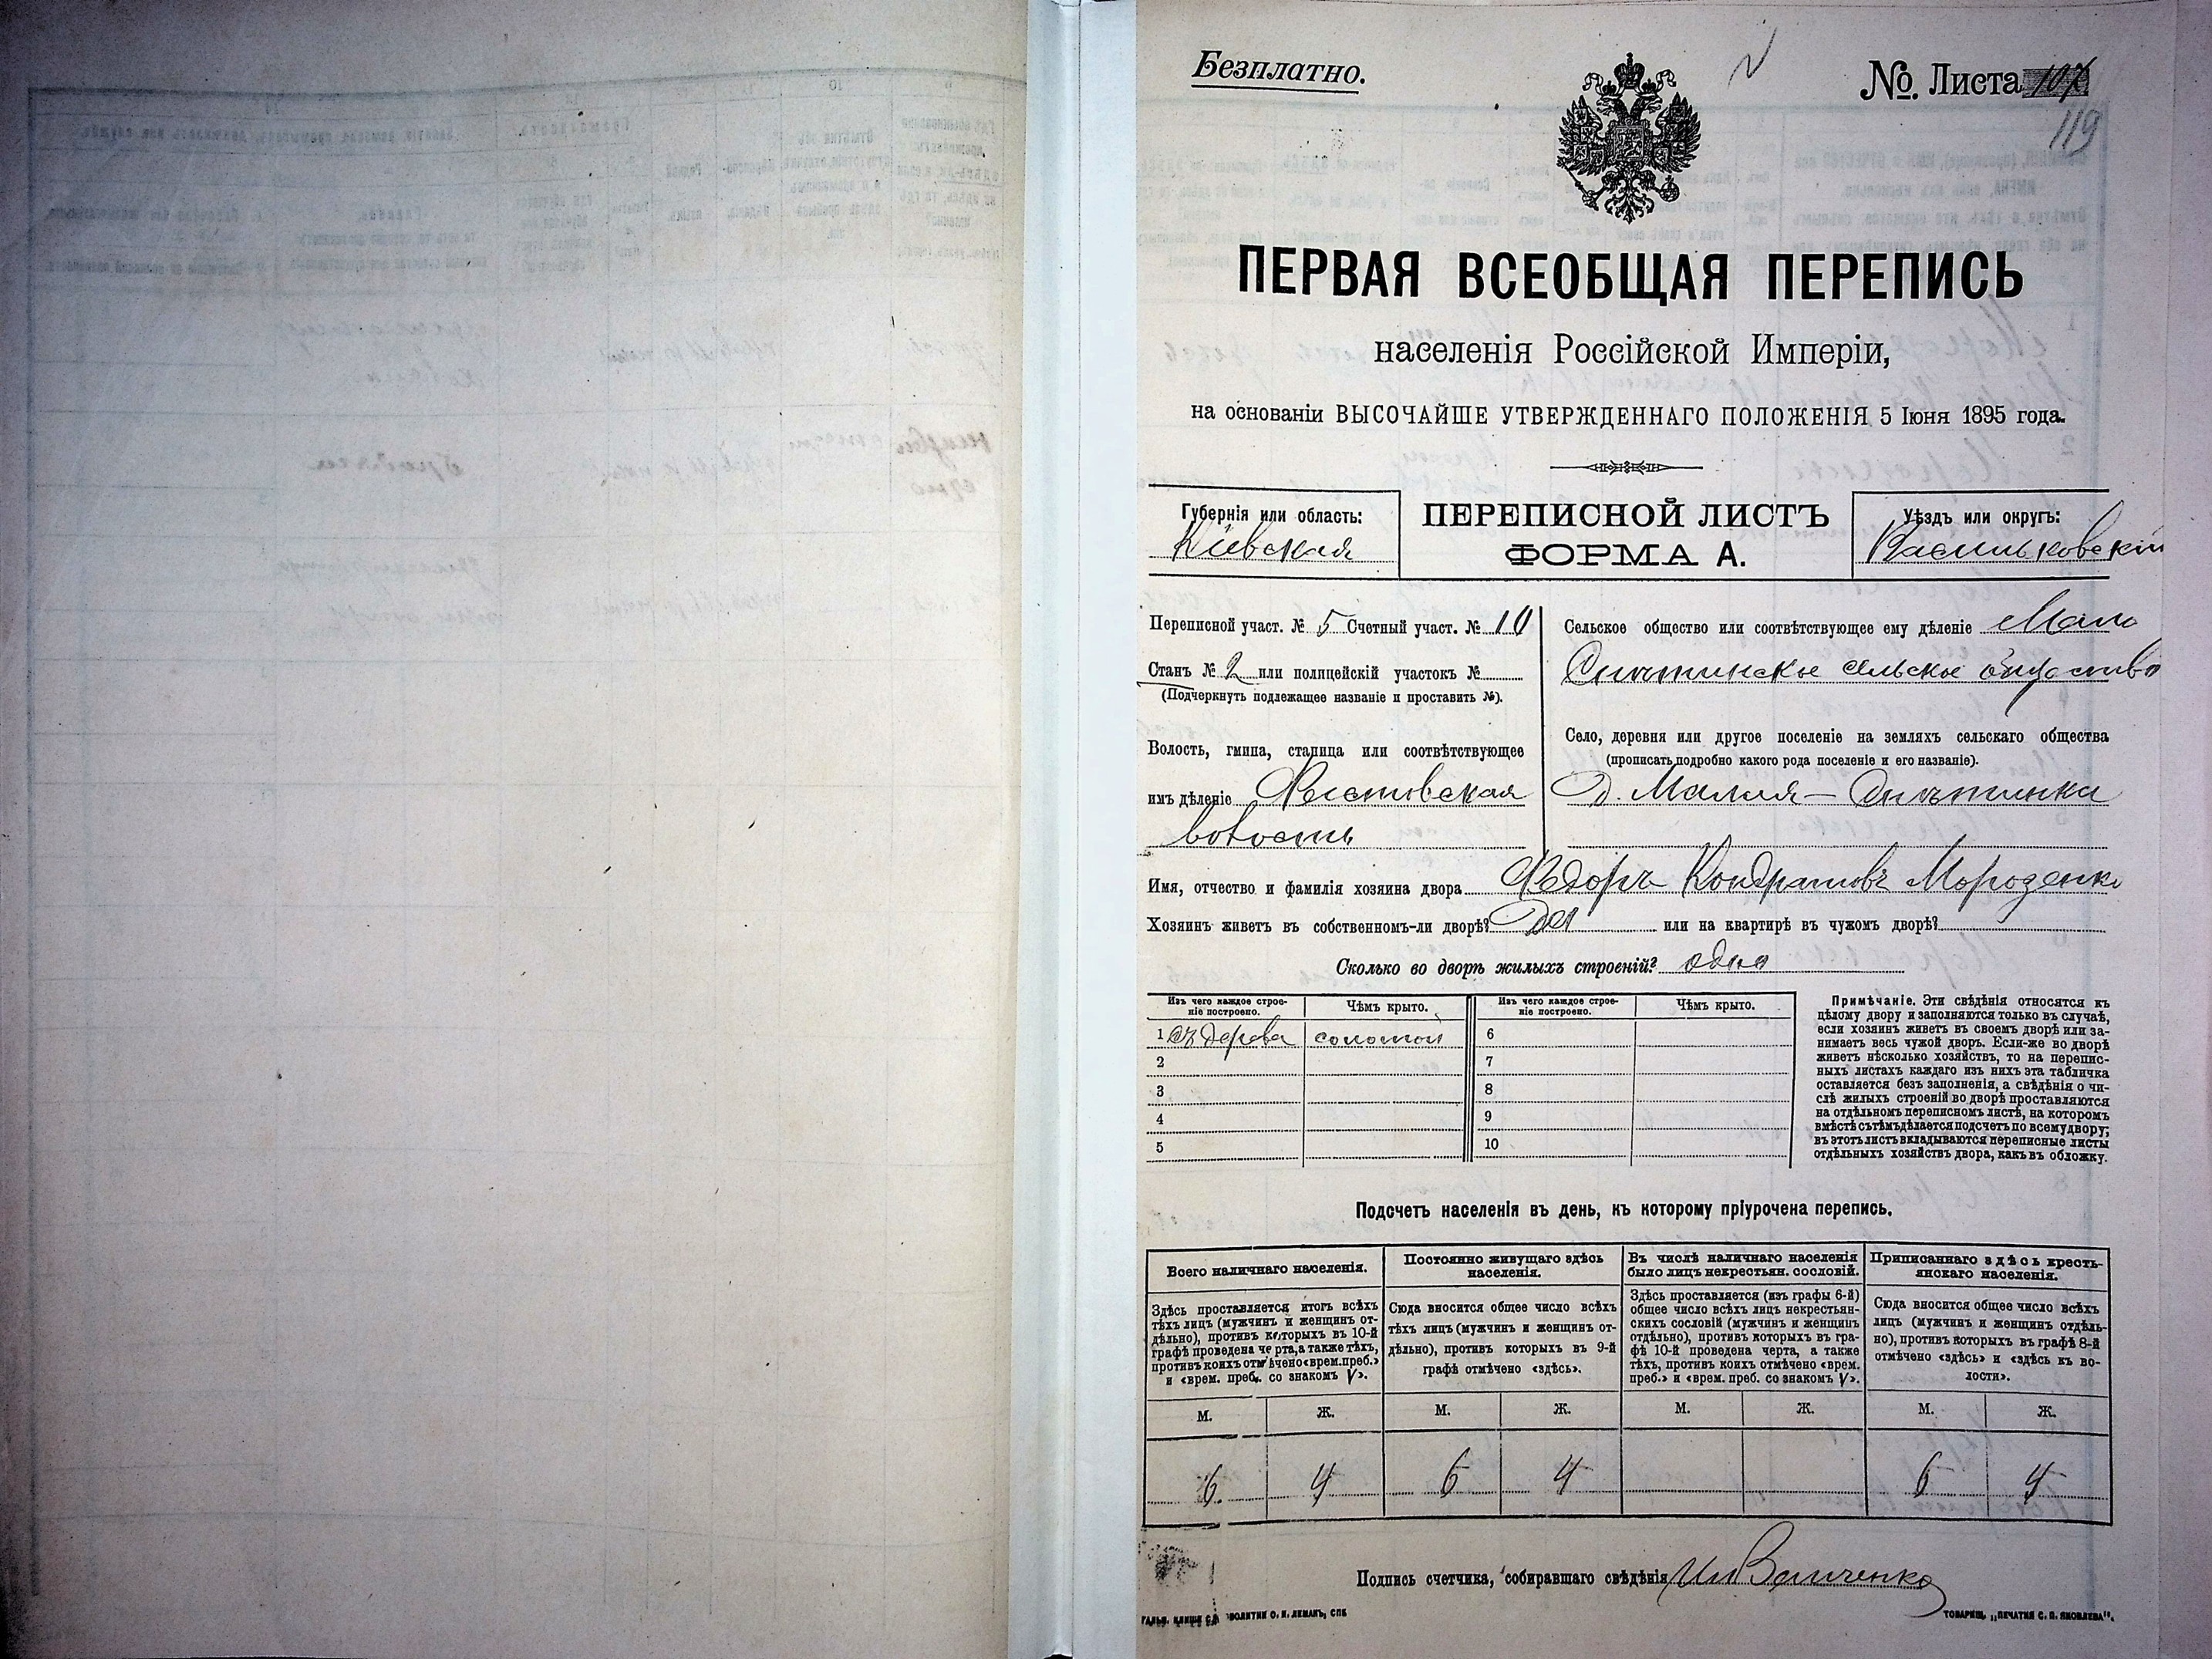 Безплатно.
№. Листа 107
119
ПЕРВАЯ ВСЕОБЩАЯ ПЕРЕПИСЬ
населенія Россійской Имперіи,
на основаніи ВЫСОЧАЙШЕ УТВЕРЖДЕННАГО ПОЛОЖЕНІЯ 5 Іюня 1895 года.
Губернія или область:
Кіевская
ПЕРЕПИСНОЙ ЛИСТЪ
ФОРМА А.
Уѣздъ или округъ:
Васильковскій
Переписной участ. № 5 Счетный участ. № 10
Станъ № 2 или полицейскій участокъ №
(Подчеркнуть подлежащее названіе и проставить №).
Волость, гмина, станица или соотвѣтствующее
имъ дѣленіе
волость
Сельское общество или соотвѣтствующее ему дѣленіе Мало
сельское общество
Село, деревня или другое поселеніе на земляхъ сельскаго общества
(прописать подробно какого рода поселеніе и его названіе).
Д. Малая-
Имя, отчество и фамилія хозяина двора Федоръ Кондратовъ Мороженко
Хозяинъ живетъ въ собственномъ-ли дворѣ? Да или на квартирѣ въ чужомъ дворѣ?
Сколько во дворѣ жилыхъ строеній? одно
Изъ чего каждое строе-
ніе построено.
Чѣмъ крыто.
1 Съ дерева соломой
2
3
4
5
Изъ чего каждое строе-
ніе построено.
Чѣмъ крыто.
6
7
8
9
10
Примѣчаніе. Эти свѣдѣнія относятся къ
цѣлому двору и заполняются только въ случаѣ,
если хозяинъ живетъ въ своемъ дворѣ или за-
нимаетъ весь чужой дворъ. Если-же во дворѣ
живетъ нѣсколько хозяйствъ, то на перепис-
ныхъ листахъ каждаго изъ нихъ эта табличка
оставляется безъ заполненія, а свѣдѣнія о чи-
слѣ жилыхъ строеній во дворѣ проставляются
на отдѣльномъ переписномъ листѣ, на которомъ
вмѣстѣ съ тѣмъ дѣлается подсчетъ по всему двору;
въ этотъ листъ вкладываются переписные листы
отдѣльныхъ хозяйствъ двора, какъ въ обложку.
Подсчетъ населенія въ день, къ которому пріурочена перепись.
Всего наличнаго населенія.
Здѣсь проставляется итогъ всѣхъ
тѣхъ лицъ (мужчинъ и женщинъ от-
дѣльно), противъ которыхъ въ 10-й
графѣ проведена черта, а также тѣхъ,
противъ коихъ отмѣчено «врем. преб.»
и «врем. преб. со знакомъ V».
Постоянно живущаго здѣсь
населенія.
Сюда вносится общее число всѣхъ
тѣхъ лицъ (мужчинъ и женщинъ от-
дѣльно), противъ которыхъ въ 9-й
графѣ отмѣчено «здѣсь».
Въ числѣ наличнаго населенія
было лицъ некрестьян. сословій.
Здѣсь проставляется (изъ графы 6-й)
общее число всѣхъ лицъ некрестьян-
скихъ сословій (мужчинъ и женщинъ
отдѣльно), противъ которыхъ въ гра-
фѣ 10-й проведена черта, а также
тѣхъ, противъ коихъ отмѣчено «врем.
преб.» и «врем. преб. со знакомъ V».
Приписаннаго здѣсь кресть-
янскаго населенія.
Сюда вносится общее число всѣхъ
лицъ (мужчинъ и женщинъ отдѣль-
но), противъ которыхъ въ графѣ 8-й
отмѣчено «здѣсь» и «здѣсь къ во-
лости».
М. Ж. М. Ж. М. Ж. М. Ж.
6 4 6 4 6 4
Подпись счетчика, собиравшаго свѣдѣнія
ТОВАРИЩ. „ПЕЧАТНЯ С. П. ЯКОВЛЕВА".